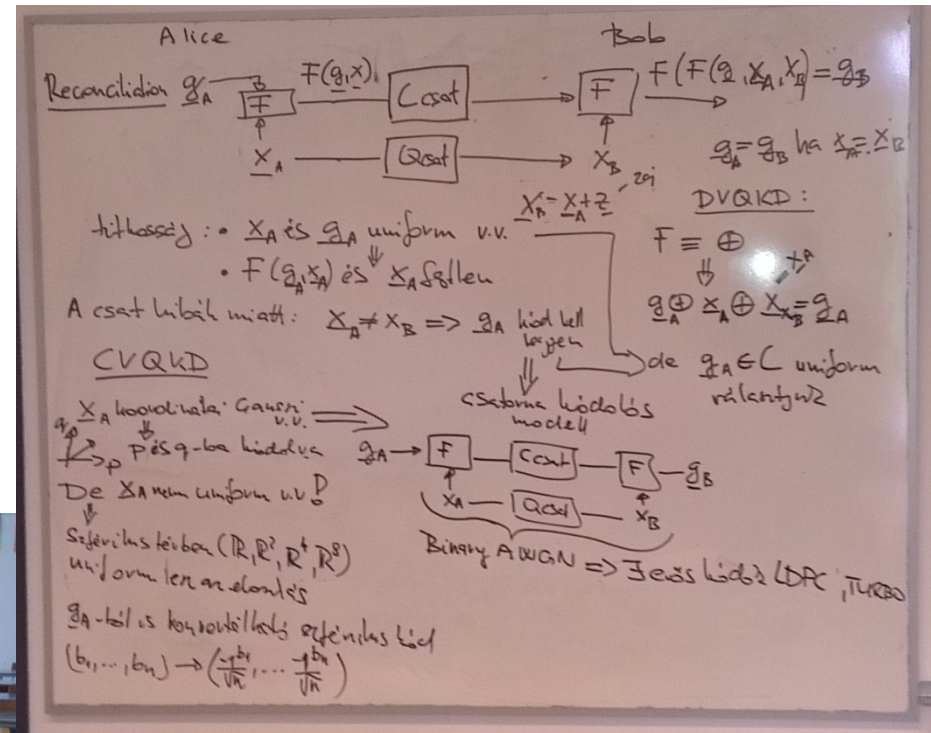 Alice Bob
Reconciliation g_A → F F(g,x) Csat → F F(F(g,x_A,x_B)=g_B
x_A Qsat → x_B
g_A=g_B ha x_A=x_B
x_B=x_A+z zaj
DVQKD:
titkosság: • x_A és g_A uniform v.v.
F ≡ ⊕
⇓
• F(g_A,x_A) és x_A fgtlen
g_A ⊕ x_A ⊕ x_B=g_A
x_A
A csat hibák miatt: x_A≠x_B ⇒ g_A kód kell legyen
de g_A∈C uniform
választjuk
⇓
csatorna kódolós
modell
CVQKD
x_A koordinátái Gauss-i v.v. ⇒
q p
p és q-ba kódolva
De x_A nem uniform v.v!
⇓
Szférikus térben (ℝ,ℝ²,ℝ⁴,ℝ⁸)
uniform lesz az eloszlás
g_A-ból is konvertálható szférikus kód
(b_1,...,b_n) → (-1^{b_1}/√n,...,-1^{b_n}/√n)
g_A → F Csat F g_B
x_A Qsat x_B
Binary AWGN ⇒ ∃ erős kód: LDPC, TURBO